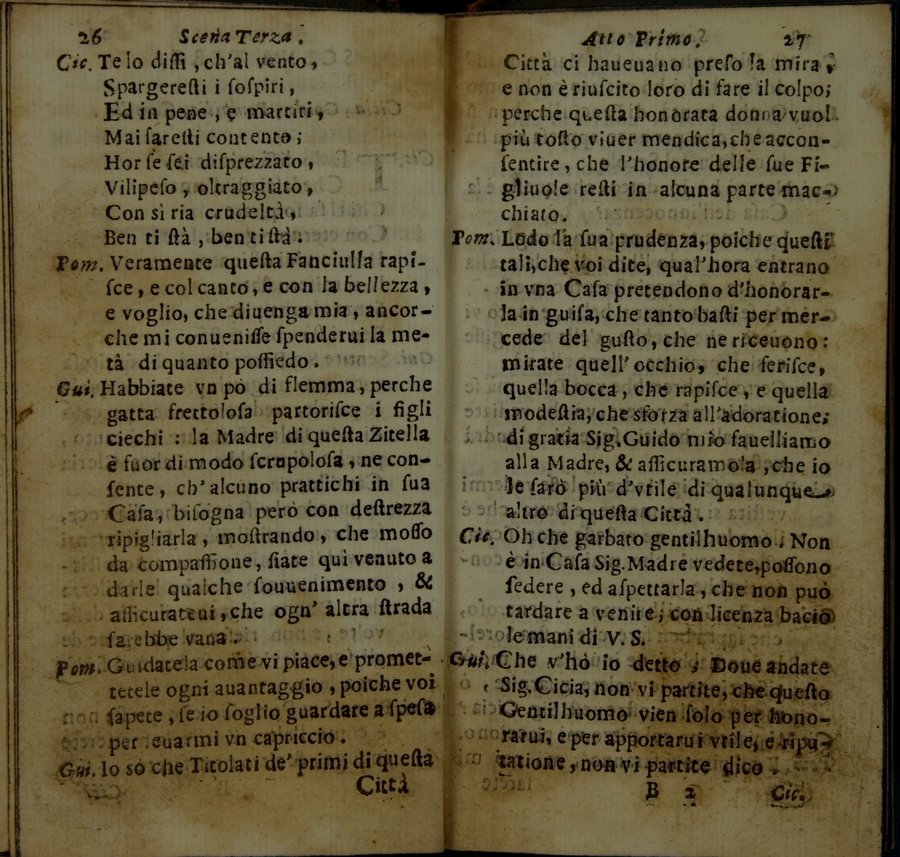 26 Scena Terza.
Cic. Te lo diſſi, ch'al vento,
Spargereſti i ſoſpiri,
Ed in pene, e martiri,
Mai ſareſti contento;
Hor ſe ſei diſprezzato,
Vilipeſo, oltraggiato,
Con sì ria crudeltà,
Ben ti ſtà, ben ti ſtà.
Pom. Veramente queſta Fanciulla rapi-
ſce, e col canto, e con la bellezza,
e voglio, che diuenga mia, ancor-
che mi conueniſſe ſpenderui la me-
tà di quanto poſſiedo.
Gui. Habbiate vn pò di flemma, perche
gatta frettoloſa partoriſce i figli
ciechi : la Madre di queſta Zitella
è fuor di modo ſcrupoloſa, ne con-
ſente, ch' alcuno prattichi in ſua
Caſa, biſogna però con deſtrezza
ripigliarla, moſtrando, che moſſo
da compaſſione, ſiate quì venuto a
darle qualche ſouuenimento, &
aſſicurateui, che ogn' altra ſtrada
ſarebbe vana.
Pom. Guidatela come vi piace, e promet-
tetele ogni auantaggio, poiche voi
ſapete, ſe io ſoglio guardare a ſpeſa
per leuarmi vn capriccio.
Gui. Io sò che Titolati de' primi di queſta
Città
Atto Primo. 27
Città ci haueuano preſo la mira,
e non è riuſcito loro di fare il colpo;
perche queſta honorata donna vuol
più toſto viuer mendica, che accon-
ſentire, che l'honore delle ſue Fi-
gliuole reſti in alcuna parte mac-
chiato.
Pom. Lodo la ſua prudenza, poiche queſti
tali, che voi dite, qual'hora entrano
in vna Caſa pretendono d'honorar-
la in guiſa, che tanto baſti per mer-
cede del guſto, che ne riceuono:
mirate quell' occhio, che feriſce,
quella bocca, che rapiſce, e quella
modeſtia, che sforza all'adoratione;
di gratia Sig. Guido mio fauelliamo
alla Madre, & aſſicuramola, che io
le ſarò più d'vtile di qualunque
altro di queſta Città.
Cic. Oh che garbato gentilhuomo. Non
è in Caſa Sig. Madre vedete, poſſono
ſedere, ed aſpettarla, che non può
tardare a venire; con licenza bacio
le mani di V. S.
Gui. Che v'hò io detto; Doue andate
Sig. Cicia, non vi partite, che queſto
Gentilhuomo vien ſolo per hono-
rarui, e per apportarui vtile, e ripu-
tatione, non vi partite dico.
B 2 Cic.